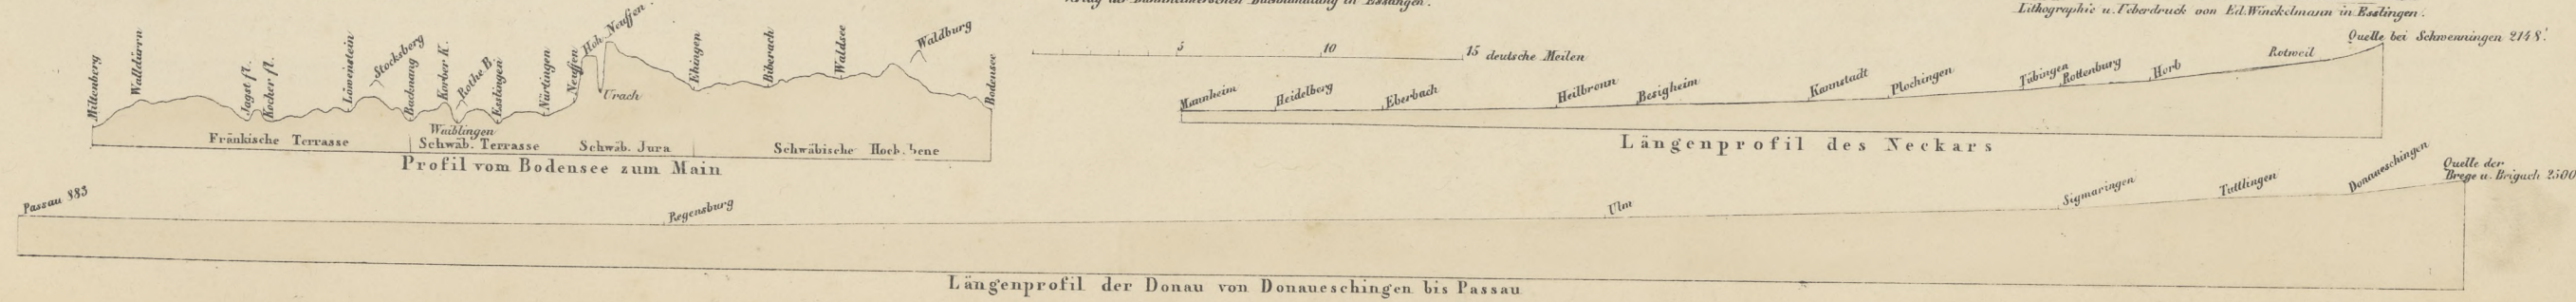 Lithographie u. Ueberdruck von Ed. Winckelmann in Esslingen.
Miltenberg
Walldürrn
Jagst fl.
Kocher fl.
Löwenstein
Stocksberg
Backnang
Korber K.
Rothe B.
Esslingen
Nürtingen
Neuffen
Hoh. Neuffen.
Urach
Ehingen
Biberach
Waldsee
Waldburg
Bodensee
Waiblingen
Fränkische Terrasse
Schwäb. Terrasse
Schwäb. Jura
Schwäbische
Profil vom Bodensee zum Main
5 10 15 deutsche Meilen
Mannheim
Heidelberg
Eberbach
Heilbronn
Besigheim
Kannstadt
Plochingen
Tübingen
Rottenburg
Horb
Rotweil
Quelle bei Schwenningen 2148'.
Längenprofil des Neckars
Passau 883
Regensburg
Ulm
Sigmaringen
Tuttlingen
Donaueschingen
Quelle der
Brege u. Brigach 2500
Längenprofil der Donau von Donaueschingen bis Passau